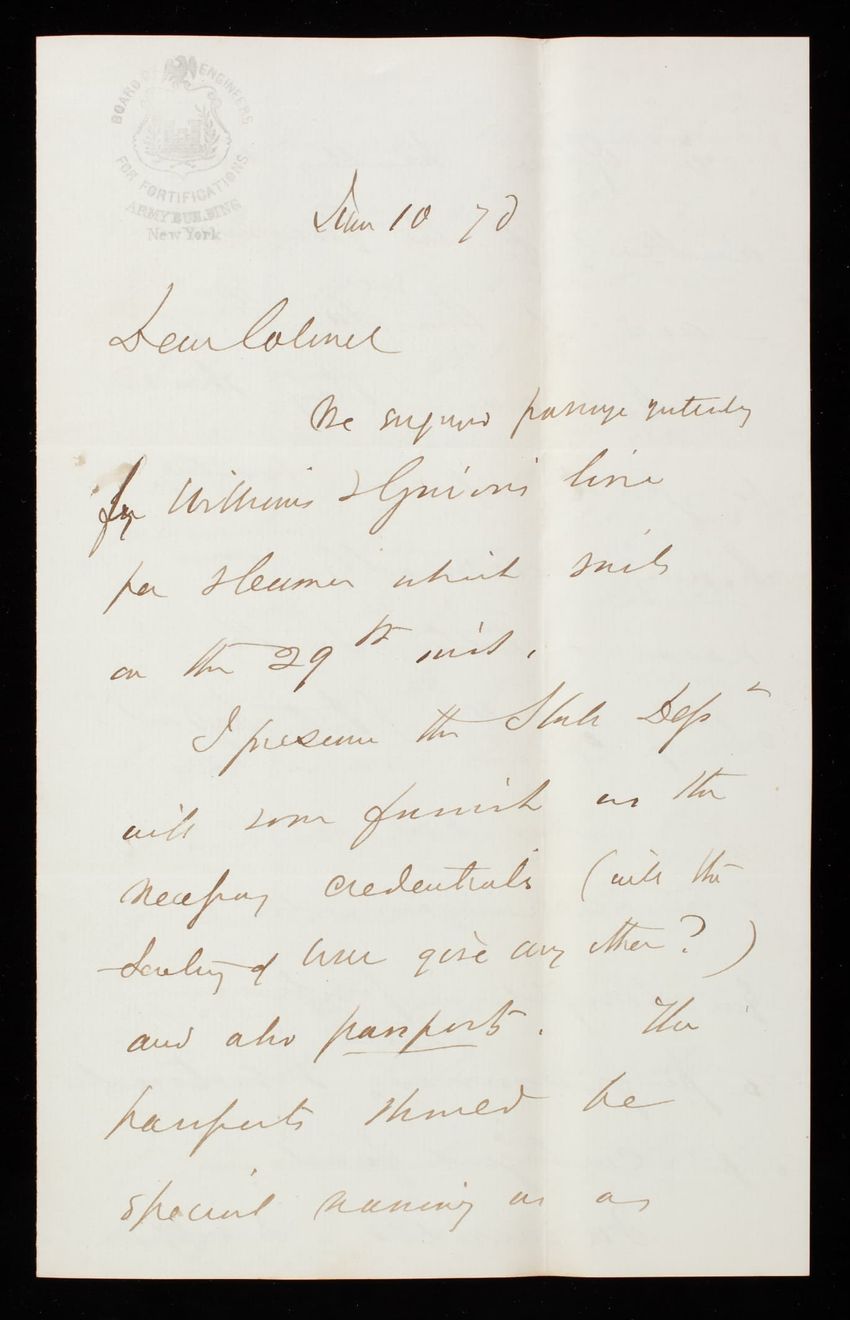 BOARD OF ENGINEERS
FOR FORTIFICATIONS
ARMY BUILDING
New York
Jan 10 70
Dear Colonel
We engaged passage yesterday
by Williams & Guion's line
per steamer which sails
on the 29th inst.
I presume the State Dept
will soon furnish us the
necessary credentials (will the
Secretary of War give any other?)
and also passports. The
passports should be
special naming us as